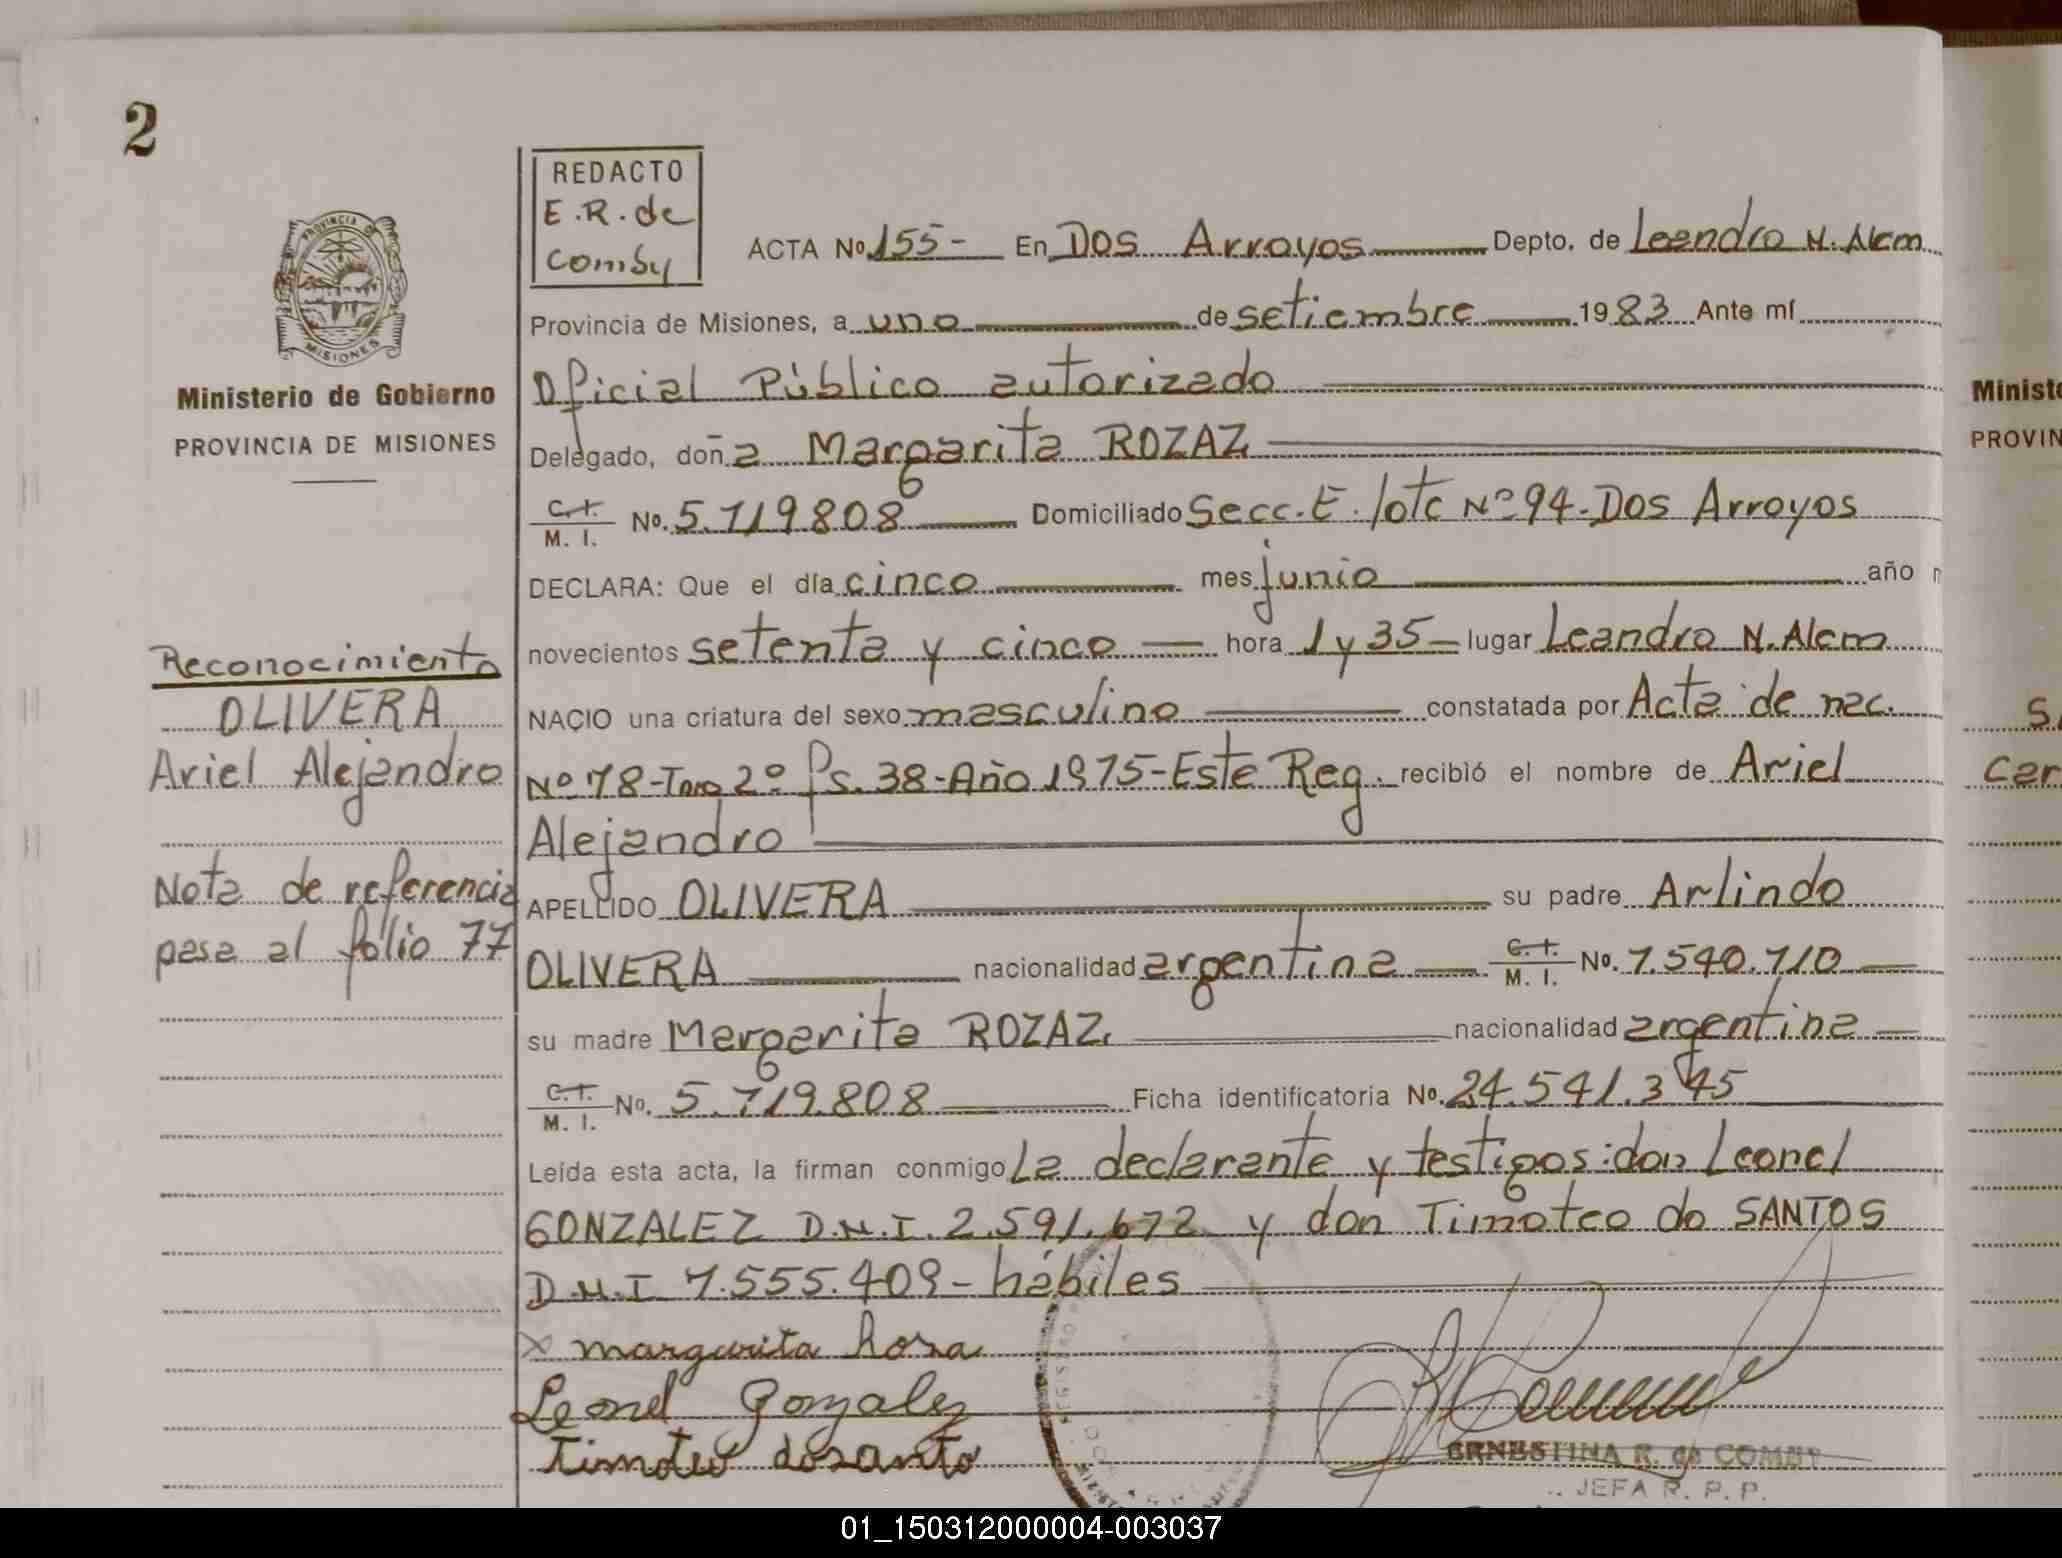 2
REDACTO
E.R. de
Comby
ACTA No. 155- En Dos Arroyos Depto. de Leandro N. Alem
Provincia de Misiones, a uno de setiembre 1983 Ante mí
Oficial Público autorizado
Delegado, doña Margarita ROZAZ
C.I. M. I. No. 5.719808 Domiciliado Secc. E. lote Nº 94-Dos Arroyos
DECLARA: Que el día cinco mes junio año
novecientos setenta y cinco hora 1 y 35 lugar Leandro N. Alem
NACIO una criatura del sexo masculino constatada por Acta de nac.
Nº 78-Tomo 2º Fs. 38-Año 1975-Este Reg. recibió el nombre de Ariel
Alejandro
APELLIDO OLIVERA su padre Arlindo
OLIVERA nacionalidad argentina C.I. M. I. No. 7.540.710
su madre Margarita ROZAZ nacionalidad argentina
C.I. M. I. No. 5.719.808 Ficha identificatoria No. 24.541.345
Leída esta acta, la firman conmigo La declarante y testigos: don Leonel
GONZALEZ D.N.I. 2.591.672 y don Timoteo do SANTOS
D.N.I 7.555.409- hábiles
x margarita Rosa
Leonel Gonzalez
timoteo dosanto
ERNESTINA R. de COMBY
JEFA R. P. P.
PROVINCIA DE
MISIONES
Ministerio de Gobierno
PROVINCIA DE MISIONES
Reconocimiento
OLIVERA
Ariel Alejandro
Nota de referencia
pasa al fólio 77
Ministe
PROVIN
S.
Car
01_150312000004-003037